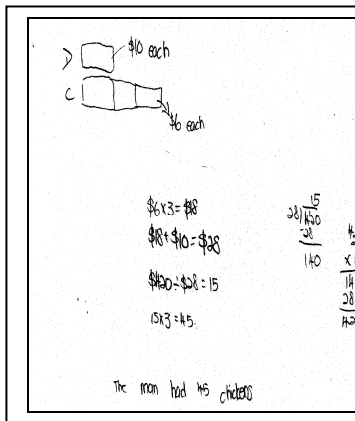 D $10 each
C
$6 each
$6x3=$18
$18+$10=$28
$420÷$28=15
15x3=45.
15
28)420
-28
140
x
14
28
42
The man had 45 chickens